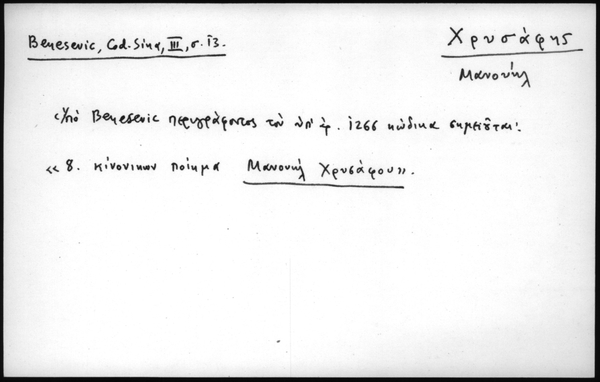 Benesevic, Cod. Sina, III, σ. 13.
Χρυσάφης
Μανουήλ
Ὑπὸ Benesevic περιγράφοντος τὸν ὑπ' ἀρ. 1266 κώδικα σημειοῦται:
«8. κίνονικων ποίημα Μανουήλ Χρυσάφου».